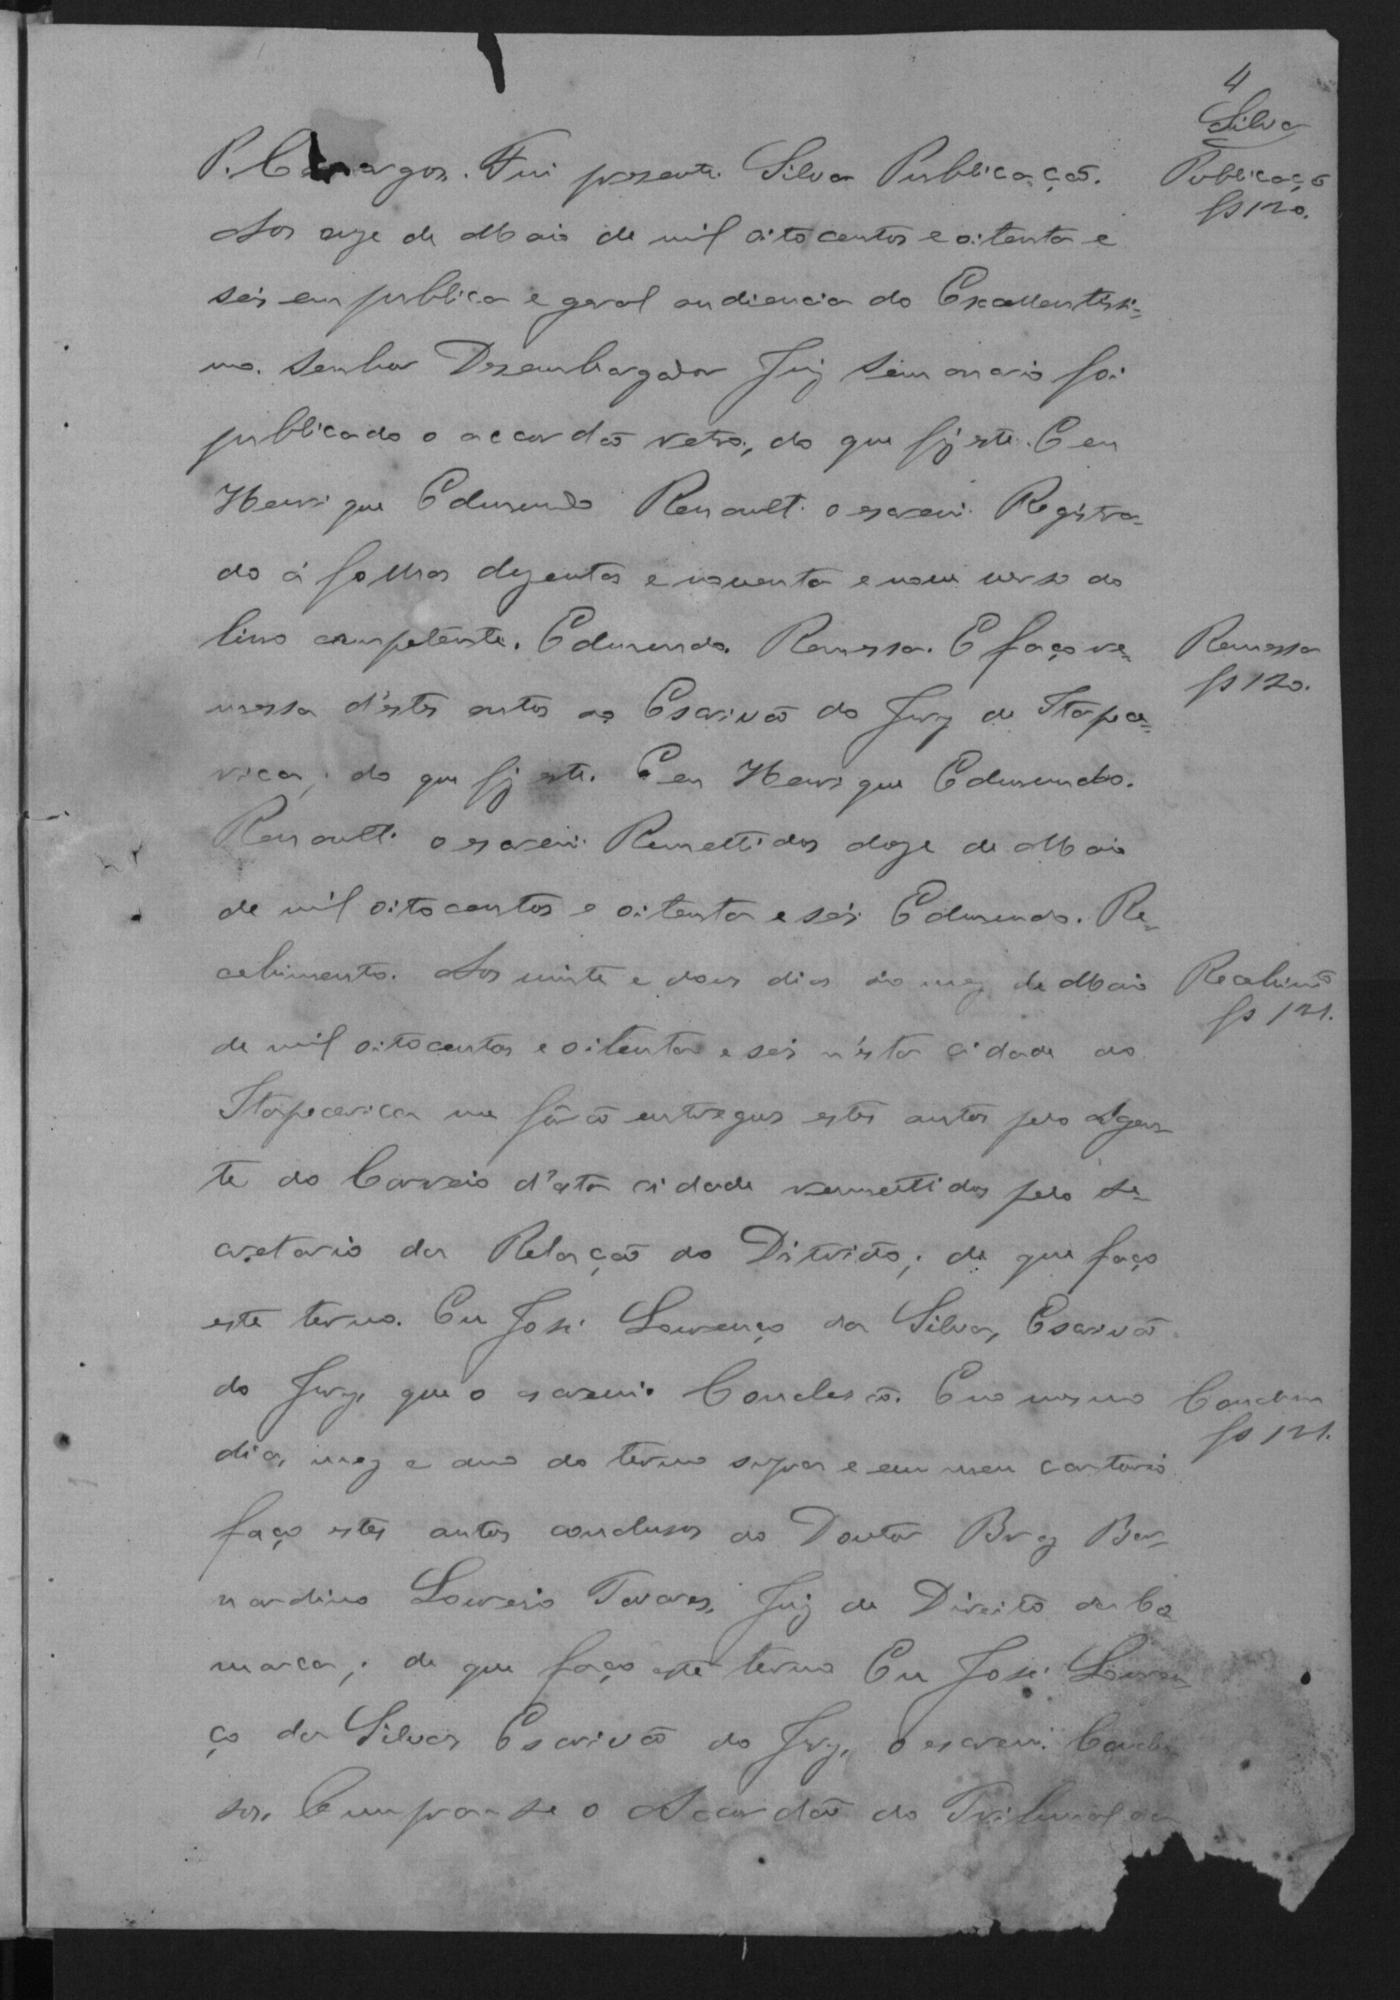 4
Silva
P. Camargos. Fui presente. Silva Publicação.
Publicação
fs 120.
Aos onze de Maio de mil oitocentos e oitenta e
seis em publica e geral audiencia do Excellentissi-
mo Senhor Desembargador Juiz Semanario foi
publicado o accordão retro, do que fiz este. E eu
Henrique Edmundo Renault o escrevi. Registra-
do á folhas duzentas e noventa e nove verso do
livro competente. Edmundo. Remessa. E faço re-
Remessa
fs 120.
messa d'estes autos ao Escrivão do Jury de Itape-
rica, do que fiz este. E eu Henrique Edmundo
Renault o escrevi. Remettidos doze de Maio
de mil oitocentos e oitenta e seis Edmundo. Re-
cebimento. Aos vinte e dous dias do mez de Maio
Recebimto
fs 121.
de mil oitocentos e oitenta e seis n'esta cidade do
Itapecerica me forão entregues estes autos pelo Agen-
te do Correio d'esta cidade remettidos pelo Se-
cretario da Relação do Districto; de que faço
este termo. Eu José Lourenço da Silva, Escrivão
do Jury, que o escrevi. Conclusão. E no mesmo
Conclusm
fs 121.
dia, mez e anno do termo supra e em meu cartorio
faço estes autos conclusos ao Doutor Braz Ber-
nardino Loureiro Tavares, Juiz de Direito da Co
marca; de que faço este termo Eu José Louren
ço da Silva Escrivão do Jury, o escrevi. Conclu
sos. Cumpra-se o Accordão do Tribunal da